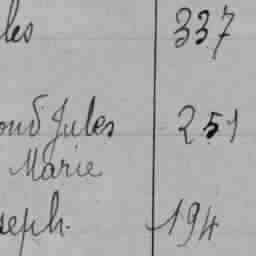 les 337
ond Jules 251
Marie
seph. 194